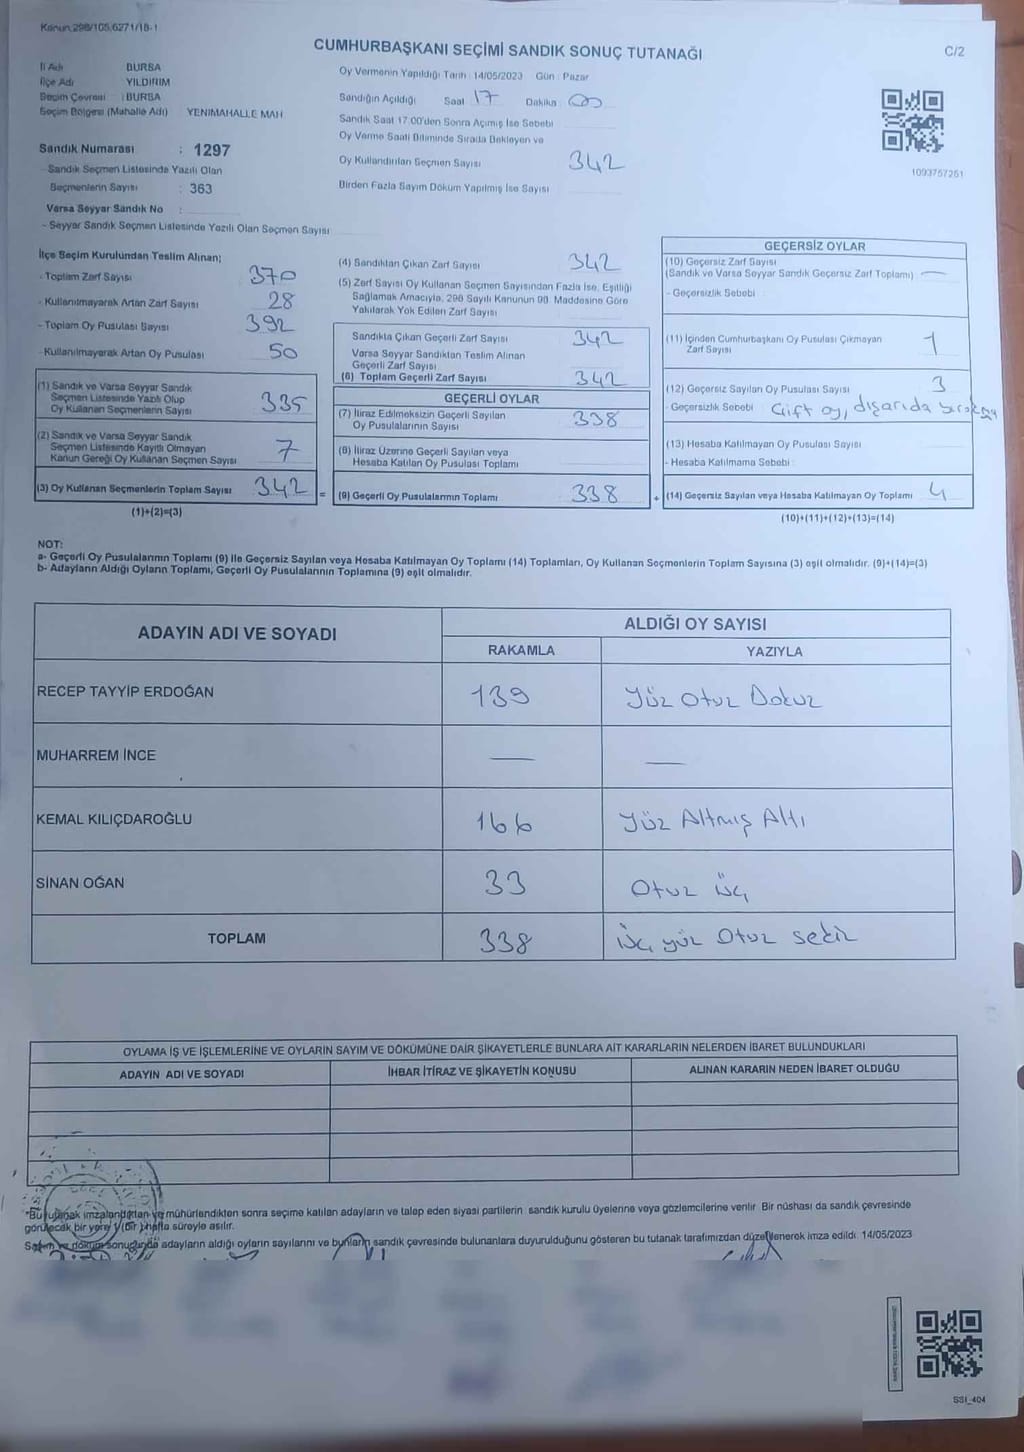 Kanun,298/105,6271/18-1
CUMHURBAŞKANI SEÇİMİ SANDIK SONUÇ TUTANAĞI
C/2
İl Adı BURSA
İlçe Adı YILDIRIM
Seçim Çevresi : BURSA
Seçim Bölgesi (Mahalle Adı) YENİMAHALLE MAH
Sandık Numarası : 1297
- Sandık Seçmen Listesinde Yazılı Olan
Seçmenlerin Sayısı : 363
Varsa Seyyar Sandık No :
- Seyyar Sandık Seçmen Listesinde Yazılı Olan Seçmen Sayısı
Oy Vermenin Yapıldığı Tarih : 14/05/2023 Gün : Pazar
Sandığın Açıldığı Saat 17 Dakika 00
Sandık Saat 17.00'den Sonra Açılmış İse Sebebi
Oy Verme Saati Bitiminde Sırada Bekleyen ve
Oy Kullandırılan Seçmen Sayısı 342
Birden Fazla Sayım Döküm Yapılmış İse Sayısı
1093757251
İlçe Seçim Kurulundan Teslim Alınan;
- Toplam Zarf Sayısı 370
- Kullanılmayarak Artan Zarf Sayısı 28
- Toplam Oy Pusulası Sayısı 392
- Kullanılmayarak Artan Oy Pusulası 50
(1) Sandık ve Varsa Seyyar Sandık
Seçmen Listesinde Yazılı Olup
Oy Kullanan Seçmenlerin Sayısı 335
(2) Sandık ve Varsa Seyyar Sandık
Seçmen Listesinde Kayıtlı Olmayan
Kanun Gereği Oy Kullanan Seçmen Sayısı 7
(3) Oy Kullanan Seçmenlerin Toplam Sayısı 342 =
(1)+(2)=(3)
(4) Sandıktan Çıkan Zarf Sayısı 342
(5) Zarf Sayısı Oy Kullanan Seçmen Sayısından Fazla İse, Eşitliği
Sağlamak Amacıyla, 298 Sayılı Kanunun 98. Maddesine Göre
Yakılarak Yok Edilen Zarf Sayısı
Sandıkta Çıkan Geçerli Zarf Sayısı 342
Varsa Seyyar Sandıktan Teslim Alınan
Geçerli Zarf Sayısı
(6) Toplam Geçerli Zarf Sayısı 342
GEÇERLİ OYLAR
(7) İtiraz Edilmeksizin Geçerli Sayılan
Oy Pusulalarının Sayısı 338
(8) İtiraz Üzerine Geçerli Sayılan veya
Hesaba Katılan Oy Pusulası Toplamı
(9) Geçerli Oy Pusulalarının Toplamı 338 +
GEÇERSİZ OYLAR
(10) Geçersiz Zarf Sayısı
(Sandık ve Varsa Seyyar Sandık Geçersiz Zarf Toplamı) —
- Geçersizlik Sebebi
(11) İçinden Cumhurbaşkanı Oy Pusulası Çıkmayan
Zarf Sayısı 1
(12) Geçersiz Sayılan Oy Pusulası Sayısı 3
- Geçersizlik Sebebi Çift oy, dışarıda
(13) Hesaba Katılmayan Oy Pusulası Sayısı
- Hesaba Katılmama Sebebi
(14) Geçersiz Sayılan veya Hesaba Katılmayan Oy Toplamı 4
(10)+(11)+(12)+(13)=(14)
NOT:
a- Geçerli Oy Pusulalarının Toplamı (9) ile Geçersiz Sayılan veya Hesaba Katılmayan Oy Toplamı (14) Toplamları, Oy Kullanan Seçmenlerin Toplam Sayısına (3) eşit olmalıdır. (9)+(14)=(3)
b- Adayların Aldığı Oyların Toplamı, Geçerli Oy Pusulalarının Toplamına (9) eşit olmalıdır.
ADAYIN ADI VE SOYADI
ALDIĞI OY SAYISI
RAKAMLA YAZIYLA
RECEP TAYYİP ERDOĞAN 139 Yüz Otuz Dokuz
MUHARREM İNCE — —
KEMAL KILIÇDAROĞLU 166 Yüz Altmış Altı
SİNAN OĞAN 33 Otuz üç
TOPLAM 338 üç yüz Otuz sekiz
OYLAMA İŞ VE İŞLEMLERİNE VE OYLARIN SAYIM VE DÖKÜMÜNE DAİR ŞİKAYETLERLE BUNLARA AİT KARARLARIN NELERDEN İBARET BULUNDUKLARI
ADAYIN ADI VE SOYADI İHBAR İTİRAZ VE ŞİKAYETİN KONUSU ALINAN KARARIN NEDEN İBARET OLDUĞU
*Bu tutanak imzalandıktan ve mühürlendikten sonra seçime katılan adayların ve talep eden siyasi partilerin sandık kurulu üyelerine veya gözlemcilerine verilir Bir nüshası da sandık çevresinde
görülecek bir yere 1 (bir) hafta süreyle asılır.
Sayım ve döküm sonuğunda adayların aldığı oyların sayılarını ve bunların sandık çevresinde bulunanlara duyurulduğunu gösteren bu tutanak tarafımızdan düzenlenerek imza edildi 14/05/2023
SSI_404